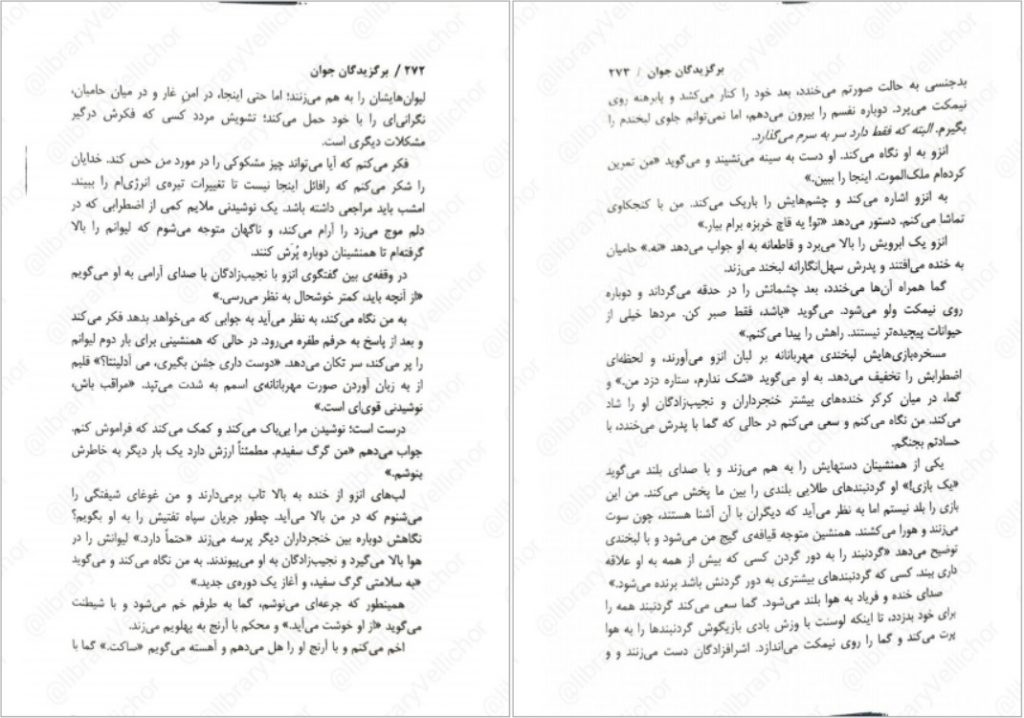 ۲۷۲ / برگزیدگان جوان
لیوان‌هایشان را به هم می‌زنند؛ اما حتی اینجا، در امنِ غار و در میان حامیان،
نگرانی‌ای را با خود حمل می‌کند؛ تشویش مردد کسی که فکرش درگیر
مشکلات دیگری است.
فکر می‌کنم که آیا می‌تواند چیز مشکوکی را در مورد من حس کند. خدایان
را شکر می‌کنم که رافائل اینجا نیست تا تغییرات تیره‌ی انرژی‌ام را ببیند.
امشب باید مراجعی داشته باشد. یک نوشیدنی ملایم کمی از اضطرابی که در
دلم موج می‌زد را آرام می‌کند، و ناگهان متوجه می‌شوم که لیوانم را بالا
گرفته‌ام تا همنشینان دوباره پُرَش کنند.
در وقفه‌ی بین گفتگوی انزو با نجیب‌زادگان با صدای آرامی به او می‌گویم
«از آنچه باید، کمتر خوشحال به نظر می‌رسی.»
به من نگاه می‌کند، به نظر می‌آید به جوابی که می‌خواهد بدهد فکر می‌کند
و بعد از پاسخ به حرفم طفره می‌رود. در حالی که همنشینی برای بار دوم لیوانم
را پر می‌کند، سر تکان می‌دهد. «دوست داری جشن بگیری، می آدلینتا؟» قلبم
از به زبان آوردن صورت مهربانانه‌ی اسمم به شدت می‌تپد. «مراقب باش،
نوشیدنی قوی‌ای است.»
درست است؛ نوشیدن مرا بی‌باک می‌کند و کمک می‌کند که فراموش کنم.
جواب می‌دهم «من گرگ سفیدم. مطمئناً ارزش دارد یک بار دیگر به خاطرش
بنوشم.»
لب‌های انزو از خنده به بالا تاب برمی‌دارند و من غوغای شیفتگی را
می‌شنوم که در من بالا می‌آید. چطور جریان سپاه تفتیش را به او بگویم؟
نگاهش دوباره بین خنجرداران دیگر پرسه می‌زند «حتماً دارد.» لیوانش را در
هوا بالا می‌گیرد و نجیب‌زادگان به او می‌پیوندند. به من نگاه می‌کند و می‌گوید
«به سلامتی گرگ سفید، و آغاز یک دوره‌ی جدید.»
همینطور که جرعه‌ای می‌نوشم، گما به طرفم خم می‌شود و با شیطنت
می‌گوید «از او خوشت می‌آید.» و محکم با آرنج به پهلویم می‌زند.
اخم می‌کنم و با آرنج او را هل می‌دهم و آهسته می‌گویم «ساکت.» گما با
برگزیدگان جوان / ۲۷۳
بدجنسی به حالت صورتم می‌خندد، بعد خود را کنار می‌کشد و پابرهنه روی
نیمکت می‌پرد. دوباره نفسم را بیرون می‌دهم، اما نمی‌توانم جلوی لبخندم را
بگیرم. البته که فقط دارد سر به سرم می‌گذارد.
انزو به او نگاه می‌کند. او دست به سینه می‌نشیند و می‌گوید «من تمرین
کرده‌ام ملک‌الموت. اینجا را ببین.»
به انزو اشاره می‌کند و چشم‌هایش را باریک می‌کند. من با کنجکاوی
تماشا می‌کنم. دستور می‌دهد «تو! یه قاچ خربزه برام بیار.»
انزو یک ابرویش را بالا می‌برد و قاطعانه به او جواب می‌دهد «نه.» حامیان
به خنده می‌افتند و پدرش سهل‌انگارانه لبخند می‌زند.
گما همراه آن‌ها می‌خندد، بعد چشمانش را در حدقه می‌گرداند و دوباره
روی نیمکت ولو می‌شود. می‌گوید «باشد، فقط صبر کن. مردها خیلی از
حیوانات پیچیده‌تر نیستند. راهش را پیدا می‌کنم.»
مسخره‌بازی‌هایش لبخندی مهربانانه بر لبان انزو می‌آورند، و لحظه‌ای
اضطرابش را تخفیف می‌دهد. به او می‌گوید «شک ندارم، ستاره دزد من.» و
گما، در میان کرکر خنده‌های بیشتر خنجرداران و نجیب‌زادگان او را شاد
می‌کند. من نگاه می‌کنم و سعی می‌کنم در حالی که گما با پدرش می‌خندد، با
حسادتم بجنگم.
یکی از همنشینان دستهایش را به هم می‌زند و با صدای بلند می‌گوید
«یک بازی!» او گردنبندهای طلایی بلندی را بین ما پخش می‌کند. من این
بازی را بلد نیستم اما به نظر می‌آید که دیگران با آن آشنا هستند، چون سوت
می‌زنند و هورا می‌کشند. همنشین متوجه قیافه‌ی گیج من می‌شود و با لبخندی
توضیح می‌دهد «گردنبند را به دور گردن کسی که بیش از همه به او علاقه
داری ببند. کسی که گردنبندهای بیشتری به دور گردنش باشد برنده می‌شود.»
صدای خنده و فریاد به هوا بلند می‌شود. گما سعی می‌کند گردنبند همه را
برای خود بدزدد، تا اینکه لوسنت با وزش بادی بازیگوش گردنبندها را به هوا
پرت می‌کند و گما را روی نیمکت می‌اندازد. اشرافزادگان دست می‌زنند و و
@libraryVellichor